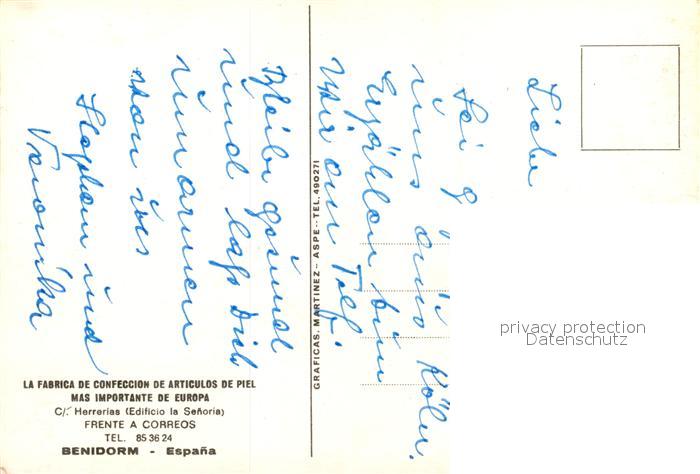 Liebe
Sei g
uns aus Köln.
Erzählen tun
wir am Telf.
Bleibe gesund
und lass Dich
umarmen
von
Stephan und
Veronika
GRAFICAS. MARTINEZ - ASPE - TEL. 490271
LA FABRICA DE CONFECCION DE ARTICULOS DE PIEL
MAS IMPORTANTE DE EUROPA
C/. Herrerias (Edificio la Señoria)
FRENTE A CORREOS
TEL. 85 36 24
BENIDORM - España
privacy protection
Datenschutz